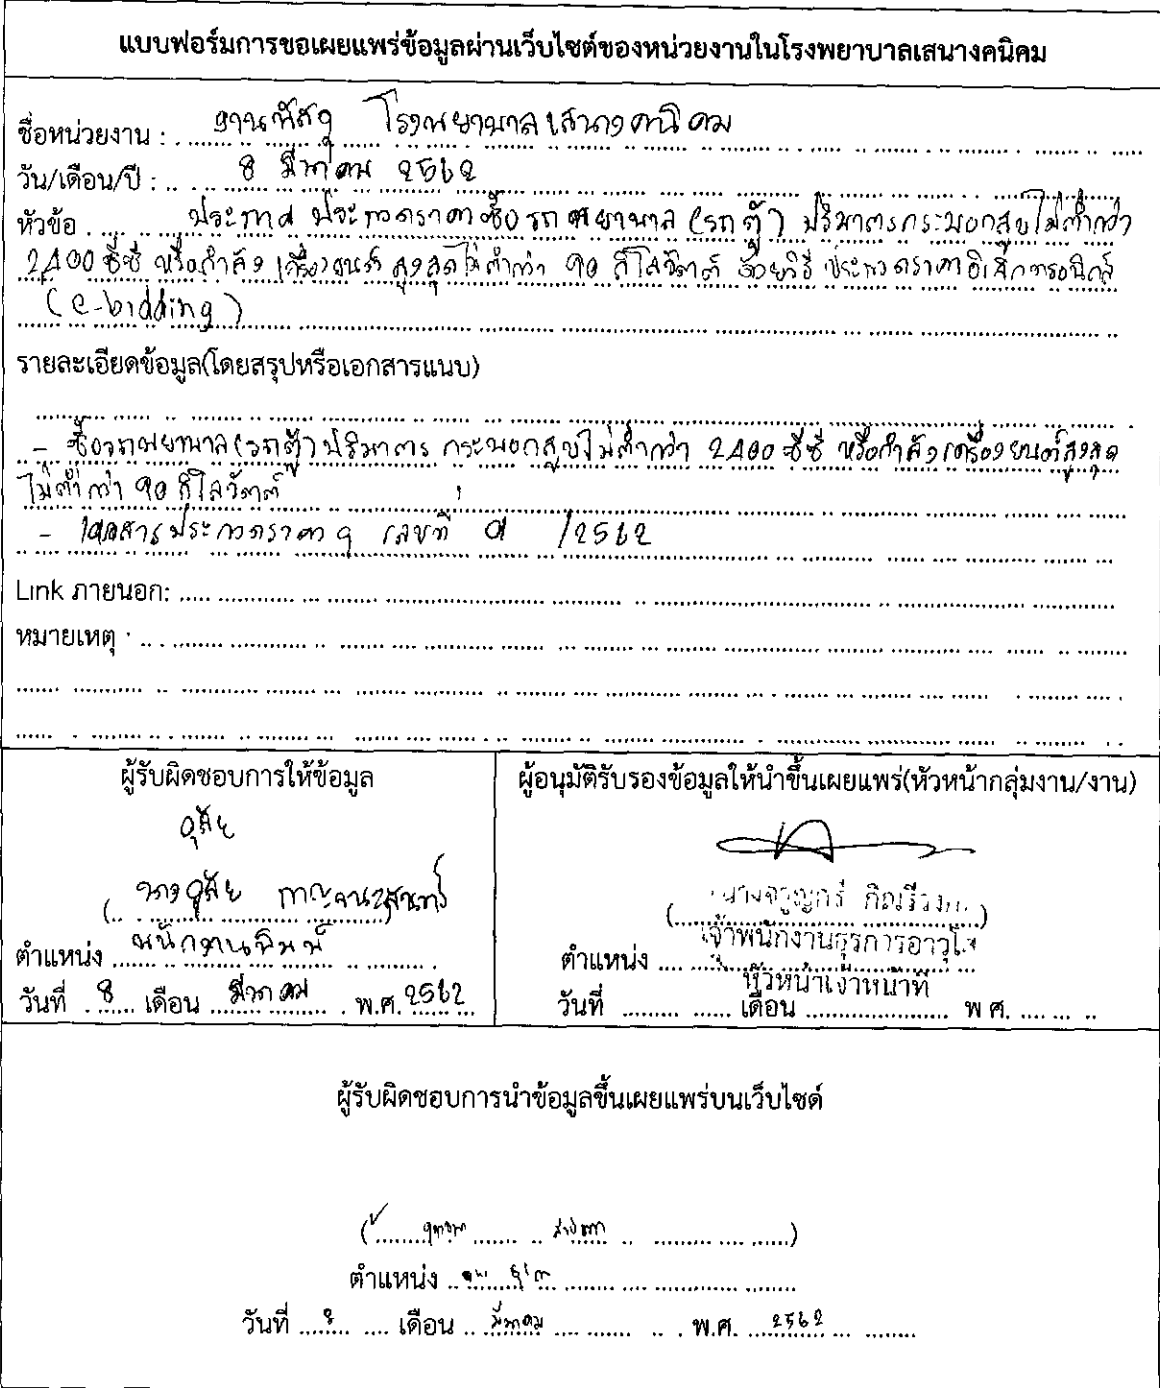 แบบฟอร์มการขอเผยแพร่ข้อมูลผ่านเว็บไซต์ของหน่วยงานในโรงพยาบาลเสนางคนิคม
ชื่อหน่วยงาน : งานพัสดุ โรงพยาบาลเสนางคนิคม
วัน/เดือน/ปี : 8 มีนาคม 2562
หัวข้อ ประกาศ ประกวดราคาซื้อรถพยาบาล (รถตู้) ปริมาตรกระบอกสูบไม่ต่ำกว่า
2,400 ซีซี หรือกำลังเครื่องยนต์สูงสุดไม่ต่ำกว่า 90 กิโลวัตต์ ด้วยวิธีประกวดราคาอิเล็กทรอนิกส์
(e-bidding)
รายละเอียดข้อมูล(โดยสรุปหรือเอกสารแนบ)
- ซื้อรถพยาบาล (รถตู้) ปริมาตร กระบอกสูบไม่ต่ำกว่า 2400 ซีซี หรือกำลังเครื่องยนต์สูงสุด
ไม่ต่ำกว่า 90 กิโลวัตต์
- เอกสารประกวดราคา ๆ เลขที่ /2562
Link ภายนอก:
หมายเหตุ :
ผู้รับผิดชอบการให้ข้อมูล
ผู้อนุมัติรับรองข้อมูลให้นำขึ้นเผยแพร่(หัวหน้ากลุ่มงาน/งาน)
อุสัย
(นางอุสัย )
ตำแหน่ง พนักงานพิมพ์
วันที่ 8 เดือน มีนาคม พ.ศ. 2562
(นาง )
ตำแหน่ง เจ้าพนักงานธุรการอาวุโส
หัวหน้าเจ้าหน้าที่
วันที่ เดือน พ ศ.
ผู้รับผิดชอบการนำข้อมูลขึ้นเผยแพร่บนเว็บไซต์
( )
ตำแหน่ง
วันที่ 8 เดือน มีนาคม พ.ศ. 2562